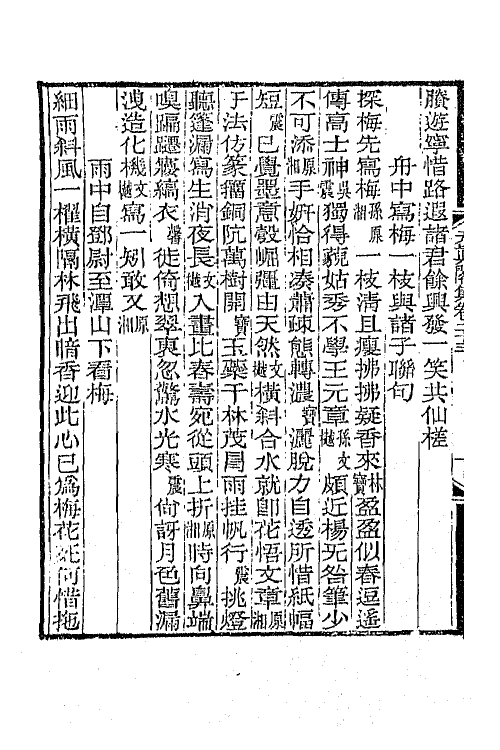 勝遊寧惜路遐諸君餘興發一笑共仙槎
舟中寫梅一枝與諸子聯句
探梅先寫梅孫原湘一枝清且癯拂拂疑香來林寶盈盈似春逗遙
傳高士神吳震獨得藐姑秀不學王元章孫文樾頗近楊无咎筆少
不可添原湘手妍恰相湊蕭疎態轉濃寶灑脫力自透所惜紙幅
短震已覺墨意彀崛彊由天然文樾橫斜合水就卽花悟文章原湘
于法仿篆籀銅阬萬樹開寶玉蘂千林茂風雨挂帆行震挑燈
聽篷漏寫生消夜長文樾入畫比春壽宛從頭上折原湘時向鼻端
嗅蹁躚縞衣徙倚想翠忽驚水光寒震尙訝月色舊漏
洩造化機文樾寫一敢又原湘
雨中自鄧尉至潭山下看梅
細雨斜風一櫂橫隔林飛出暗香迎此心已爲梅花死何惜拖